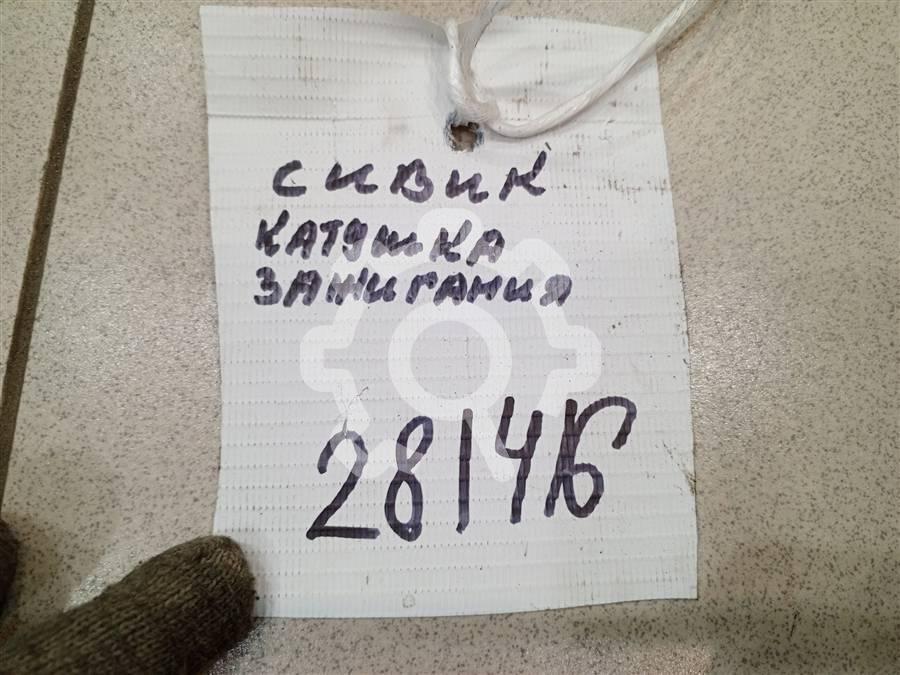 СИВИК
КАТУШКА
ЗАЖИГАНИЯ
281416